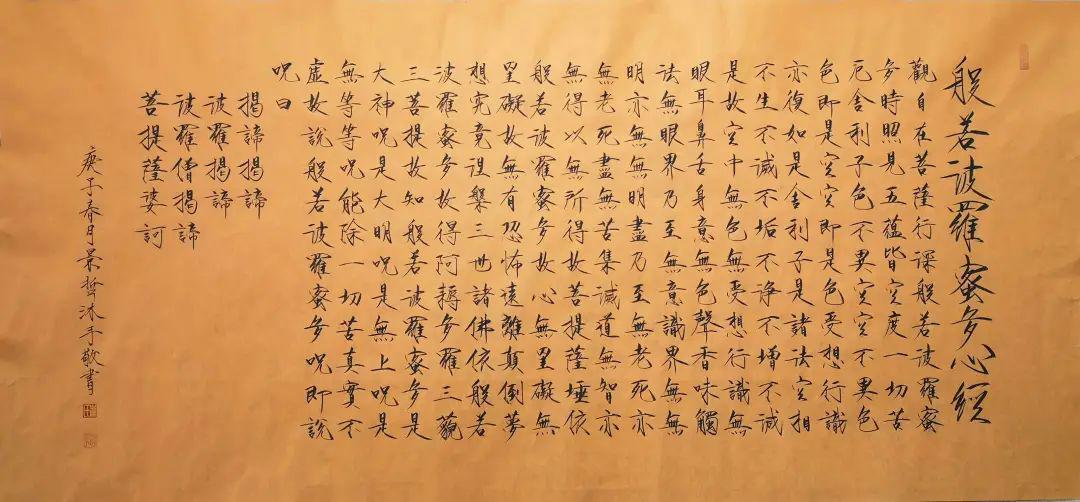 般若波羅蜜多心經
觀自在菩薩行深般若波羅蜜
多時照見五蘊皆空度一切苦
厄舍利子色不異空空不異色
色即是空空即是色受想行識
亦復如是舍利子是諸法空相
不生不滅不垢不淨不增不減
是故空中無色無受想行識無
眼耳鼻舌身意無色聲香味觸
法無眼界乃至無意識界無無
明亦無無明盡乃至無老死亦
無老死盡無苦集滅道無智亦
無得以無所得故菩提薩埵依
般若波羅蜜多故心無罣礙無
罣礙故無有恐怖遠離顛倒夢
想究竟涅槃三世諸佛依般若
波羅蜜多故得阿耨多羅三藐
三菩提故知般若波羅蜜多是
大神呪是大明呪是無上呪是
無等等呪能除一切苦真實不
虛故說般若波羅蜜多呪即說
呪曰
揭諦揭諦
波羅揭諦
波羅僧揭諦
菩提薩婆訶
庚子春月景哲沐手敬書